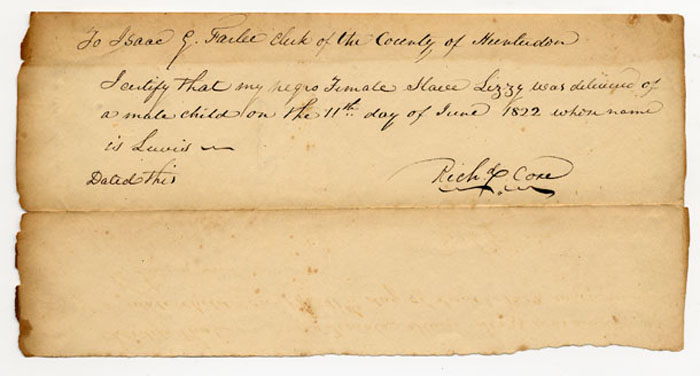 To Isaac G. Farlee Clerk of the County of Hunterdon
I certify that my negro Female Slave Lizzy was delivered of
a male child on the 11th day of June 1822 whose name
is Lewis
Dated this
Richd Coxe